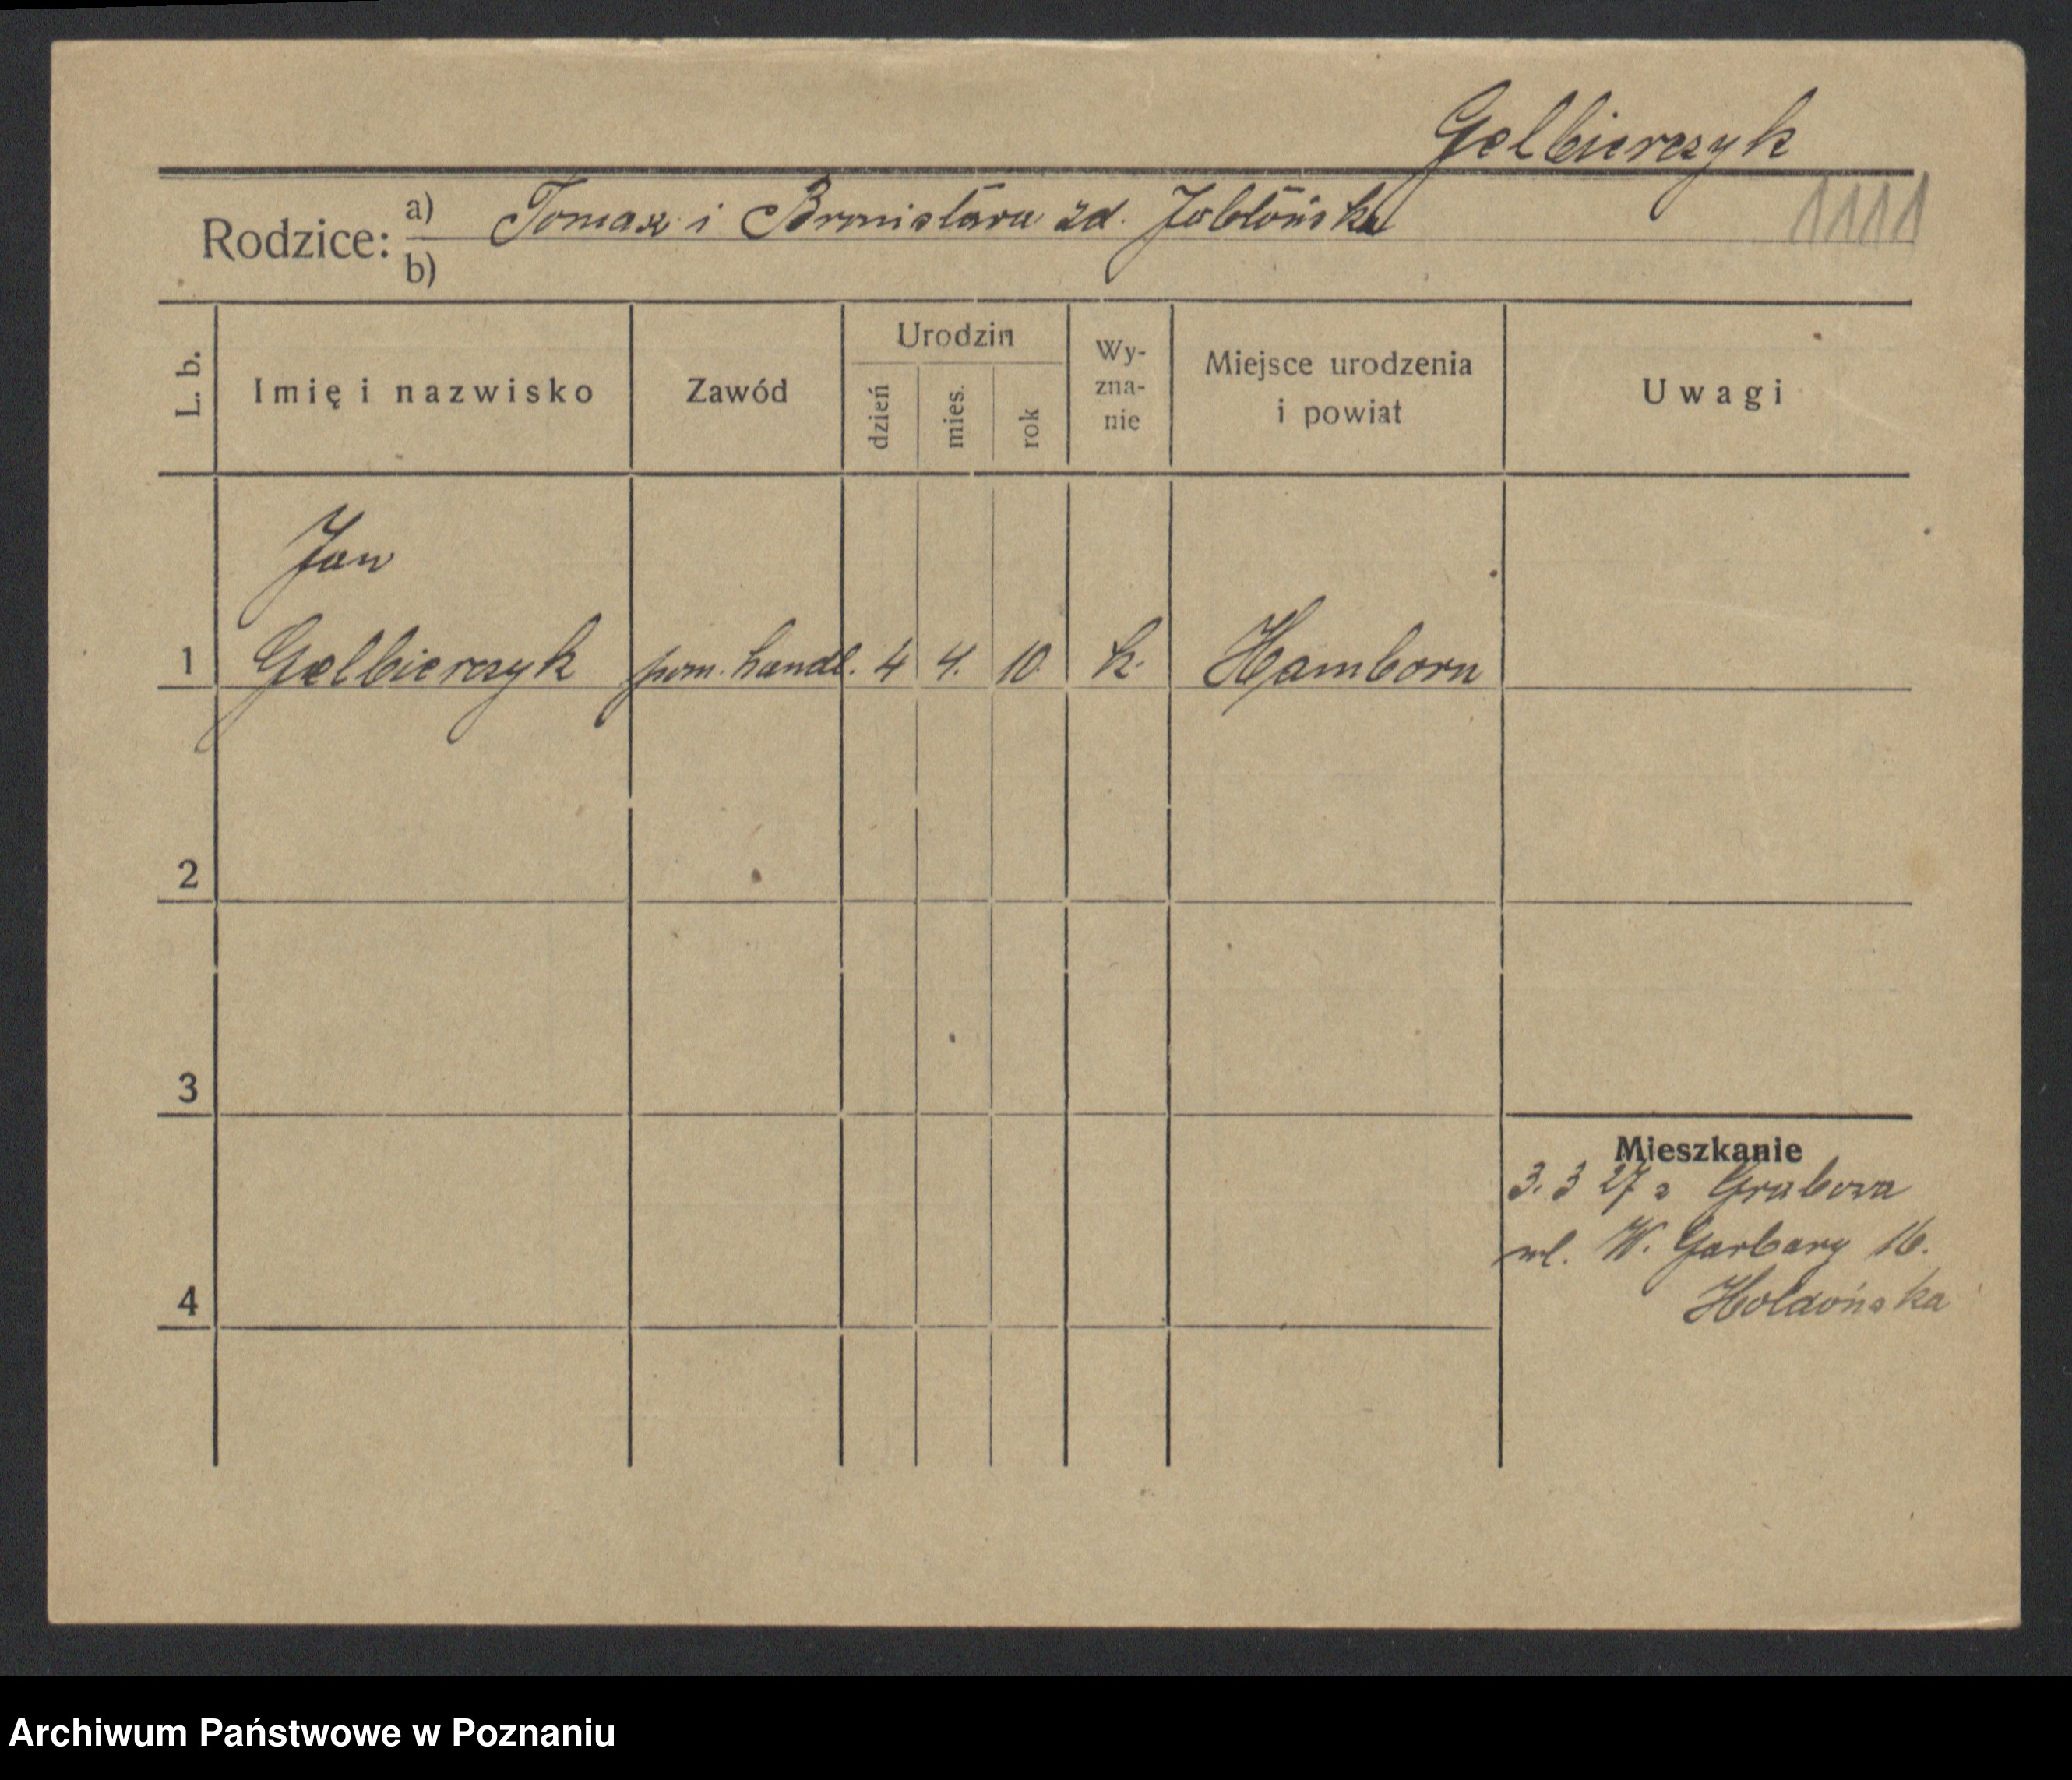 Gelbierczyk
Rodzice: a) Tomasz i Bronisława zd. Jabłońska 1111
b)
L. b. Imię i nazwisko Zawód Urodzin dzień mies. rok Wy-zna-nie Miejsce urodzenia i powiat Uwagi
Jan
1 Gelbierczyk pom. handl. 4 4. 10. k. Hamborn
2
3
Mieszkanie
3. 3 27 z Grabowa
W. Garbary 16.
4
Archiwum Państwowe w Poznaniu